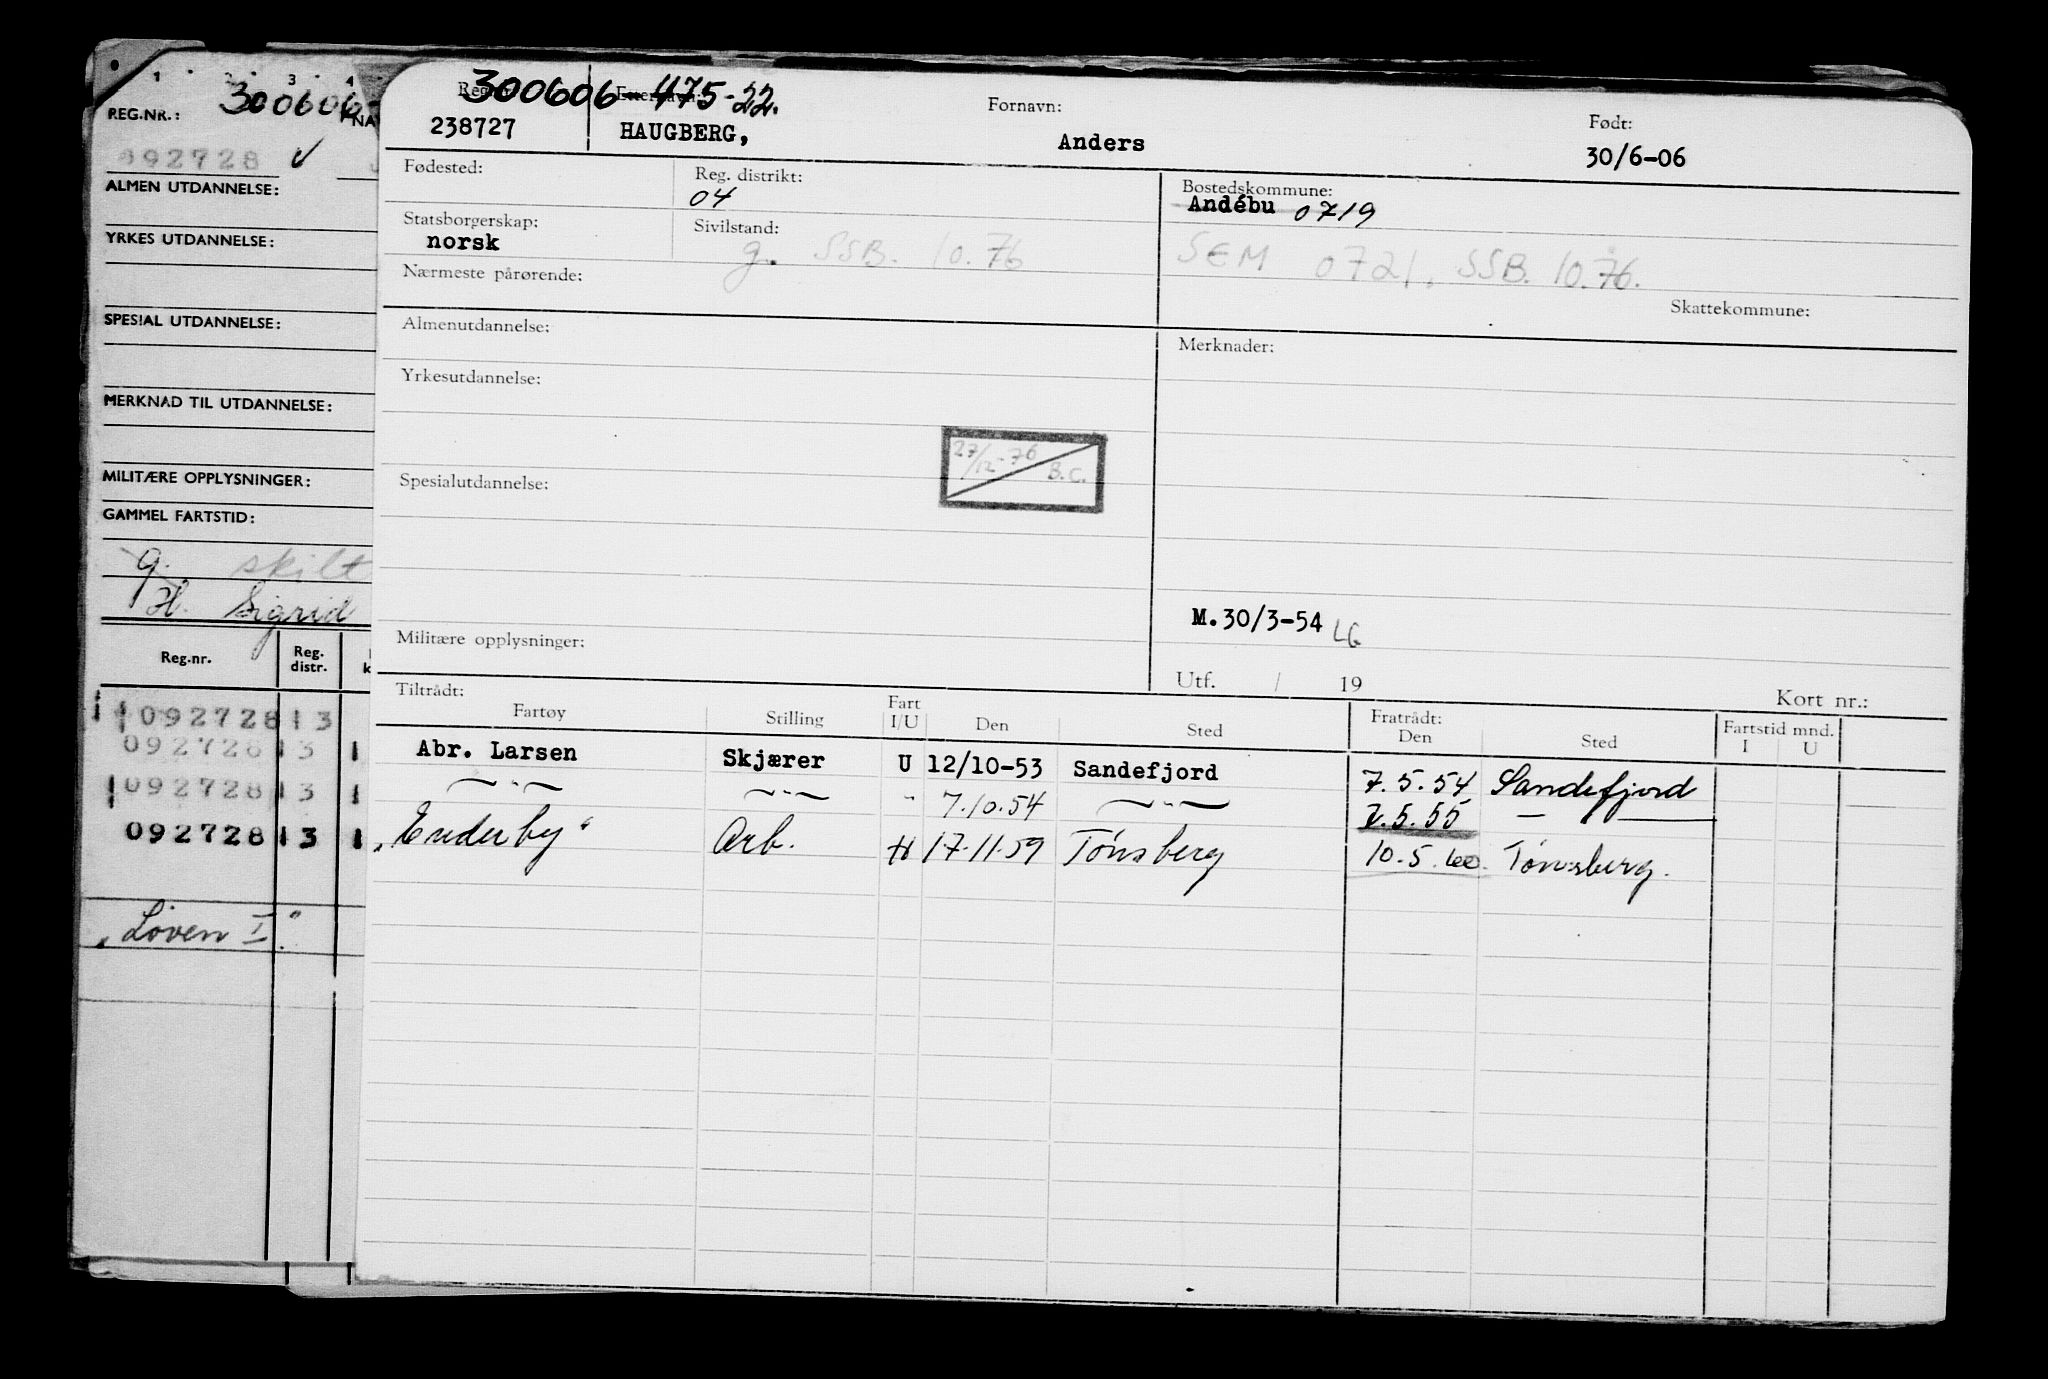 1 2 3 4
REG.NR.: 300606
092728 ✓
ALMEN UTDANNELSE:
YRKES UTDANNELSE:
SPESIAL UTDANNELSE:
MERKNAD TIL UTDANNELSE:
MILITÆRE OPPLYSNINGER:
GAMMEL FARTSTID:
g. skilt
H. Sigrid
Reg.nr. Reg. distr.
092728 13
092728 13 1
092728 13 1
092728 13 1
„Løven I."
300606 475-22.
Etternavn: Fornavn: Født:
238727 HAUGBERG, Anders 30/6-06
Fødested: Reg. distrikt: Bostedskommune:
04 Andebu 0719
Statsborgerskap: Sivilstand:
norsk g. SSB. 10.76 SEM 0721, SSB. 10.76.
Nærmeste pårørende: Skattekommune:
Almenutdannelse: Merknader:
Yrkesutdannelse:
27/12-76 B.C.
Spesialutdannelse:
M.30/3-54 LG
Militære opplysninger:
Utf. / 19 Kort nr.:
Tiltrådt: Fart Fratrådt: Fartstid mnd.
Fartøy Stilling I/U Den Sted Den Sted I U
Abr. Larsen Skjærer U 12/10-53 Sandefjord 7.5.54 Sandefjord
—"— —"— " 7.10.54 —"— 7.5.55 —
„Enderby" Arb. H 17.11.59 Tønsberg 10.5.60. Tønsberg.